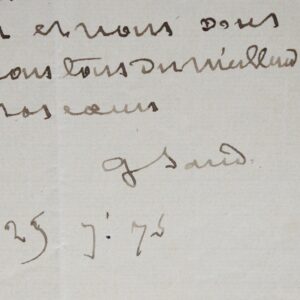 et nous dous
tous du meilleur
nos cœurs
G Sand.
25 j: 75